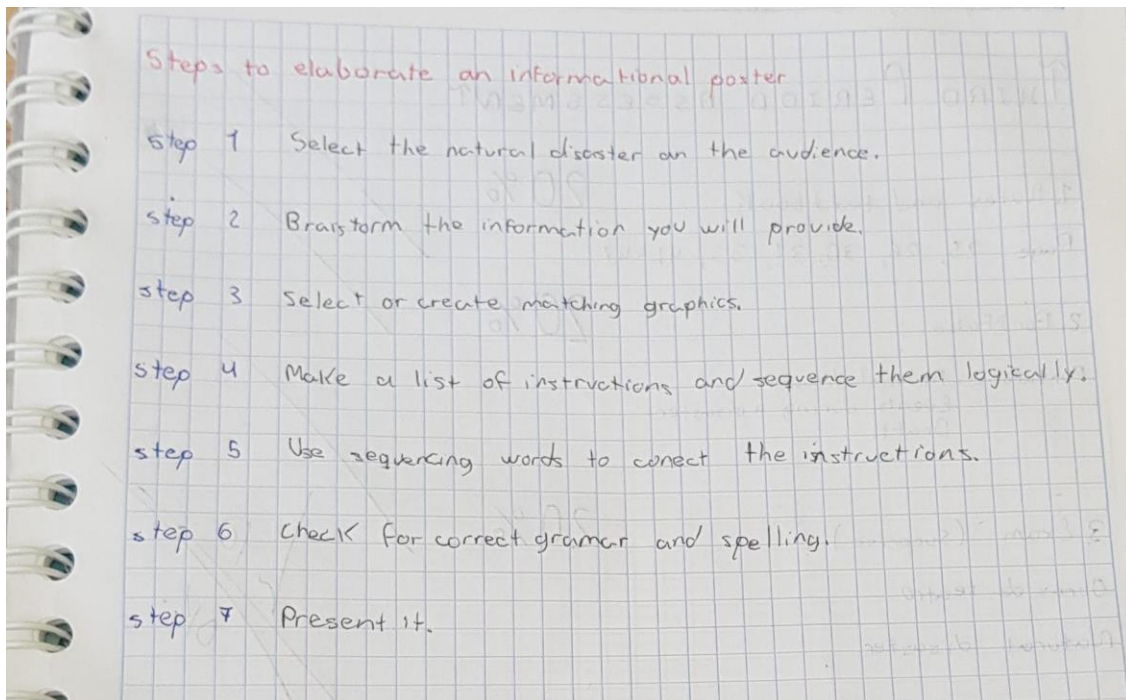 Steps to elaborate an informational poster
step 1 Select the natural disaster an the audience.
step 2 Braistorm the information you will provide.
step 3 Select or create matching graphics.
step 4 Make a list of instructions and sequence them logically.
step 5 Use sequencing words to conect the instructions.
step 6 check for correct gramar and spelling.
step 7 Present it.